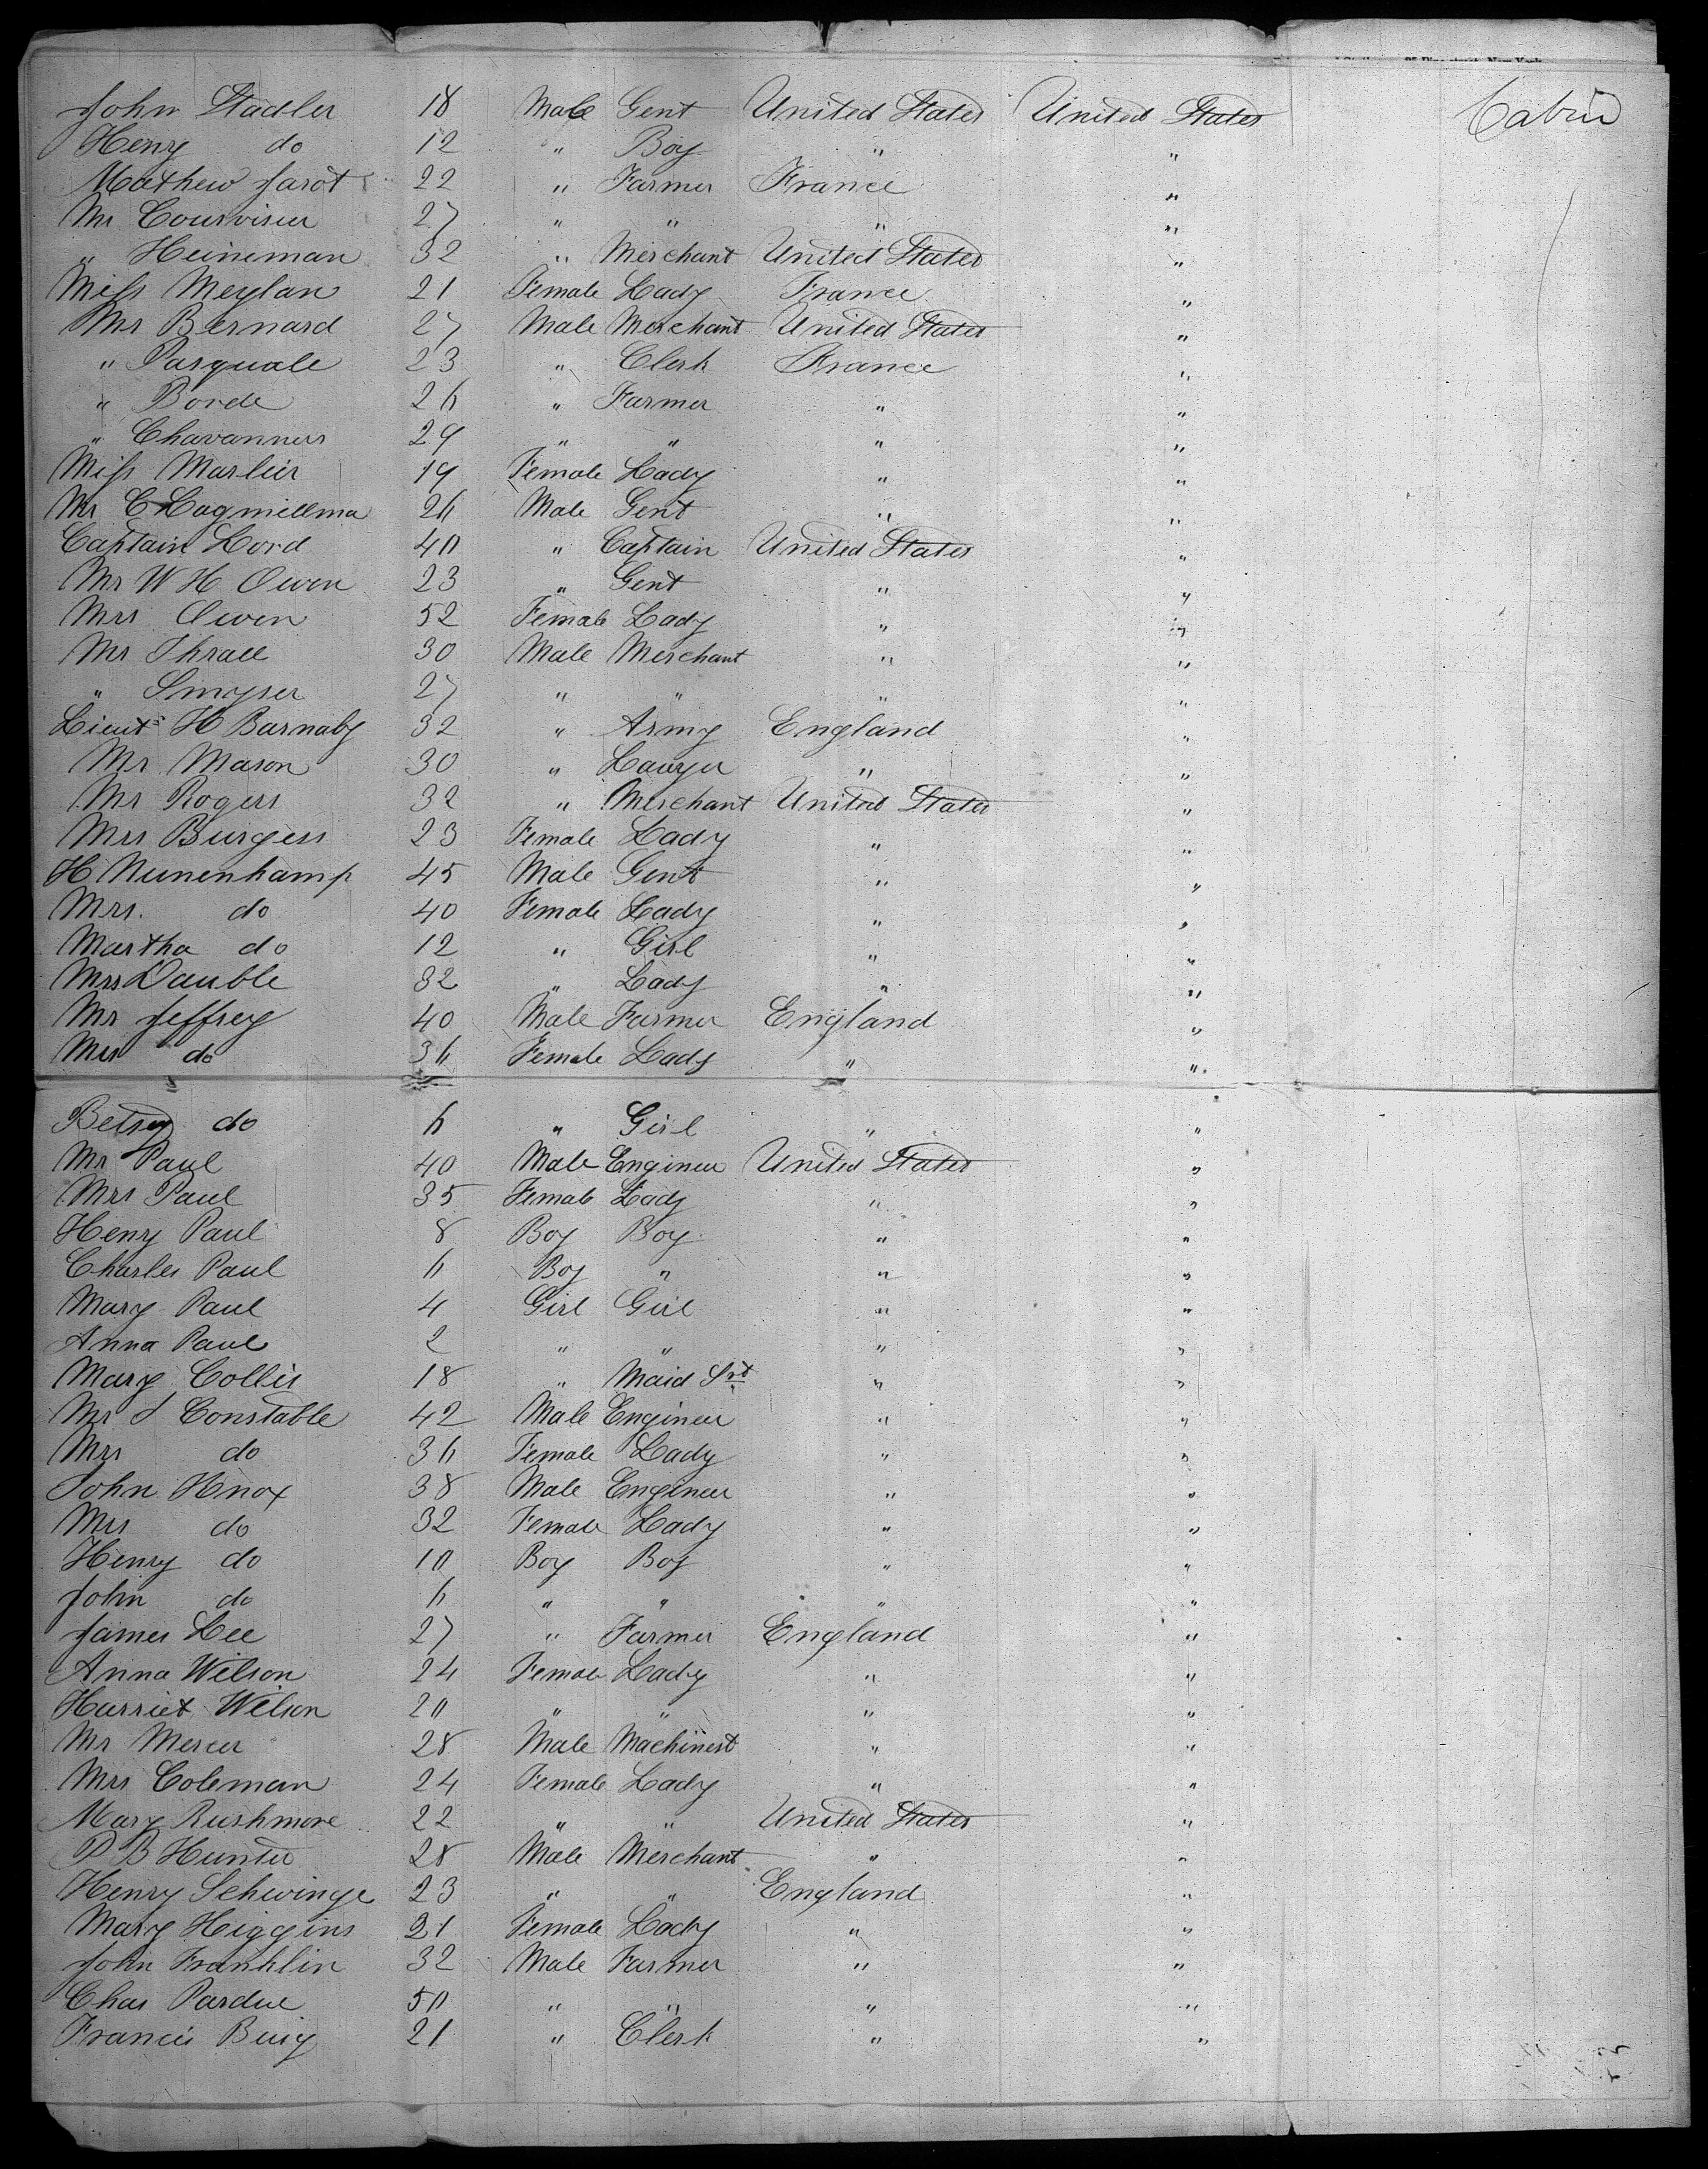 John Stadler 18 Male Gent United States United States Cabin
Heny do 12 " Boy " "
Mathew Jarot 22 " Farmer France "
Mr Courvisier 27 " " " "
" Heineman 32 " Merchant United States "
Miss Meylan 21 Female Lady France "
Mr Bernard 27 Male Merchant United States "
" Pasquale 23 " Clerk France "
" Borde 26 " Farmer " "
" Chavannes 29 " " " "
Miss Marlier 19 Female Lady " "
Mr C 26 Male Gent " "
Captain Lord 40 " Captain United States "
Mr W H Owen 23 " Gent " "
Mrs Owen 52 Female Lady " "
Mr Thrall 30 Male Merchant " "
" Smyser 27 " " " "
Lieut H Barnaby 32 " Army England "
Mr Mason 30 " Lawyer " "
Mr Rogers 32 " Merchant United States "
Mrs Burgess 23 Female Lady " "
H Nunenkamp 45 Male Gent " "
Mrs. do 40 Female Lady " "
Martha do 12 " Girl " "
Mrs Dauble 32 " Lady " "
Mr Jeffrey 40 Male Farmer England "
Mrs do 36 Female Lady " "
Betsy do 6 " Girl " "
Mr Paul 40 Male Engineer United States "
Mrs Paul 35 Female Lady " "
Heny Paul 8 Boy Boy " "
Charles Paul 6 Boy " " "
Mary Paul 4 Girl Girl " "
Anna Paul 2 " " " "
Mary Collis 18 " Maid Svt " "
Mr S Constable 42 Male Engineer " "
Mrs do 36 Female Lady " "
John Knox 38 Male Engineer " "
Mrs do 32 Female Lady " "
Henry do 10 Boy Boy " "
John do 6 " " " "
James Lee 27 " Farmer England "
Anna Wilson 24 Female Lady " "
Harriet Wilson 20 " " " "
Mr Mercer 28 Male Machinest " "
Mrs Coleman 24 Female Lady " "
Mary Rushmore 22 " " United States "
P B Hunter 28 Male Merchant " "
Henry Schwinge 23 " " England "
Mary Higgins 21 Female Lady " "
John Franklin 32 Male Farmer " "
Chas Pardue 50 " " " "
Francis Buig 21 " Clerk " "